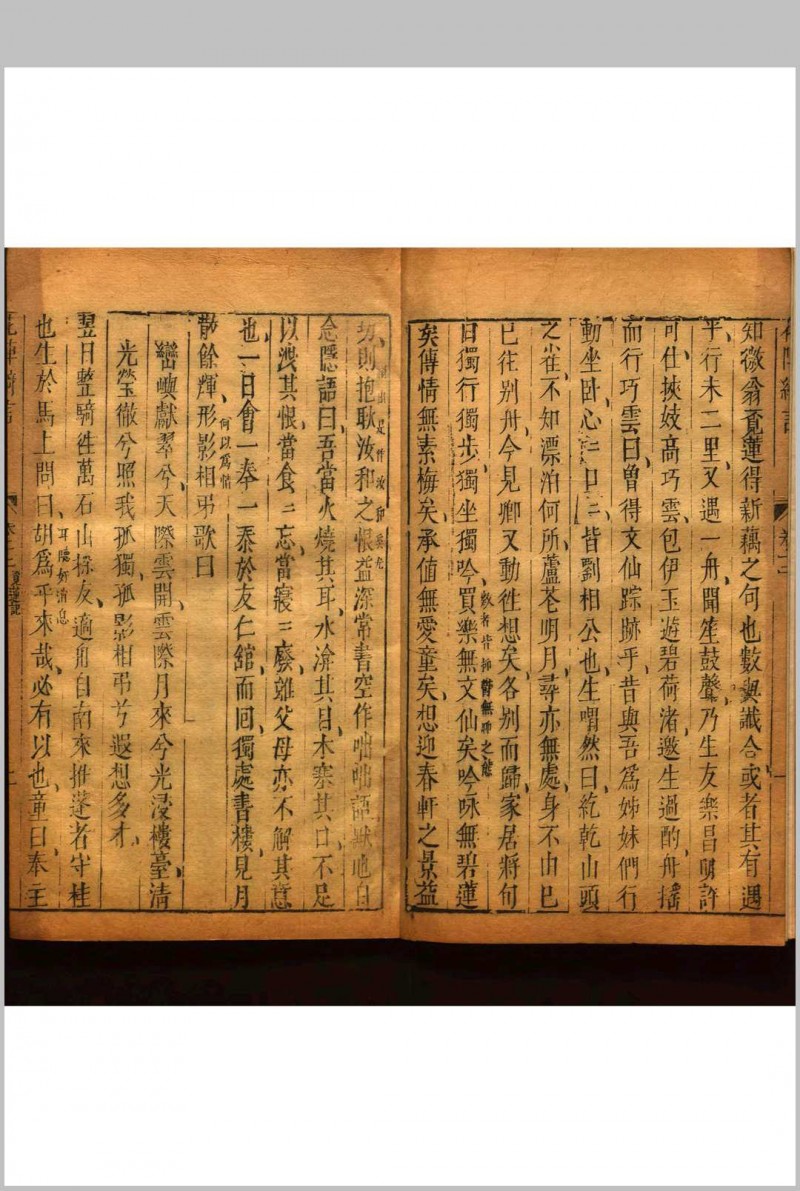 知微翁覔蓮得新藕之句也數與讖合或者其有遇
乎行未二里又遇一舟開笙鼓聲乃生友樂昌明許
可仕挾妓高巧雲包伊玉遊碧荷渚邀生過酌舟搖
而行巧雲曰曾得文仙踪跡乎昔與吾為姊妹們行
動坐卧心二口二皆劉相公也生喟然曰紇乾山頭
之雀不知漂泊何所蘆苍明月尋亦無處身不由已
已往别舟今見卿又動徃想矣各别而歸家居將旬
日獨行獨步獨坐獨吟買樂無文仙矣吟咏無碧蓮
矣傳情無素梅矣承值無愛童矣想迎春軒之景益
切則抱耿汝和之恨益深常書空作咄咄語默地自
念隱語曰吾當火燒其耳水渰其目木寨其口不足
以洩其恨當食二忘當寢二廢雖父母亦不解其意
也一日會一奉一泰於友仁舘而回獨處書樓見月
何以爲情
散餘輝形影相弔歌曰
巒嶼獻翠兮天際雲開雲際月來兮光浸樓臺清
光瑩徹兮照我孤獨孤影相弔兮遐想多才
翌日整騎徃萬石山探友適舟自南來推蓬者守桂
也生於馬上問曰胡爲乎來哉必有以也童曰奉主
耳隱奸消息